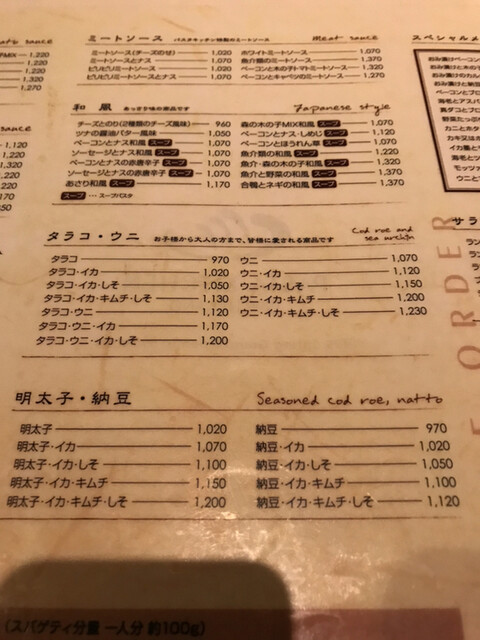 ats sauce
1,220
1,220
1,320
1,220
1,220
sauce
ミートソース パスタキッチン特製のミートソース meat sauce
ミートソース(チーズのせ) 1,020
ミートソースとナス 1,070
ピリピリミートソース 1,020
ピリピリミートソースとナス 1,070
ホワイトミートソース 1,070
魚介類のミートソース 1,320
ベーコンと木の子トマトミートソース 1,320
ベーコンとキャベツのミートソース 1,220
和風 あっさり味の逸品です Japanese style
チーズとのり(2種類のチーズ風味) 960
ツナの醤油バター風味 1,050
ベーコンとナス和風 スープ 1,070
ソーセージとナス和風 スープ 1,070
ベーコンとナスの赤唐辛子 スープ 1,070
ソーセージとナスの赤唐辛子 スープ 1,070
あさり和風 スープ 1,170
スープ … スープパスタ
森の木の子MIX和風 スープ 1,070
ベーコンとナス・しめじ スープ 1,120
ベーコンとほうれん草 スープ 1,070
魚介類の和風 スープ 1,220
魚介・森の木の子和風 スープ 1,320
魚介と野菜の和風 スープ 1,370
合鴨とネギの和風 スープ 1,370
タラコ・ウニ お子様から大人の方まで、皆様に愛される逸品です Cod roe and sea urchin
タラコ 970
タラコ・イカ 1,020
タラコ・イカ・しそ 1,050
タラコ・イカ・キムチ・しそ 1,130
タラコ・ウニ 1,120
タラコ・ウニ・イカ 1,170
タラコ・ウニ・イカ・しそ 1,200
ウニ 1,070
ウニ・イカ 1,120
ウニ・イカ・しそ 1,150
ウニ・イカ・キムチ 1,200
ウニ・イカ・キムチ・しそ 1,230
明太子・納豆 Seasoned cod roe, natto
明太子 1,020
明太子・イカ 1,070
明太子・イカ・しそ 1,100
明太子・イカ・キムチ 1,150
明太子・イカ・キムチ・しそ 1,200
納豆 970
納豆・イカ 1,020
納豆・イカ・しそ 1,050
納豆・イカ・キムチ 1,100
納豆・イカ・キムチ・しそ 1,120
スペシャルメ
おみ漬けベーコン
おみ漬けと木の子
おみ漬けのカル
サラ
ORDER
(スパゲティ分量 一人分 約100g)